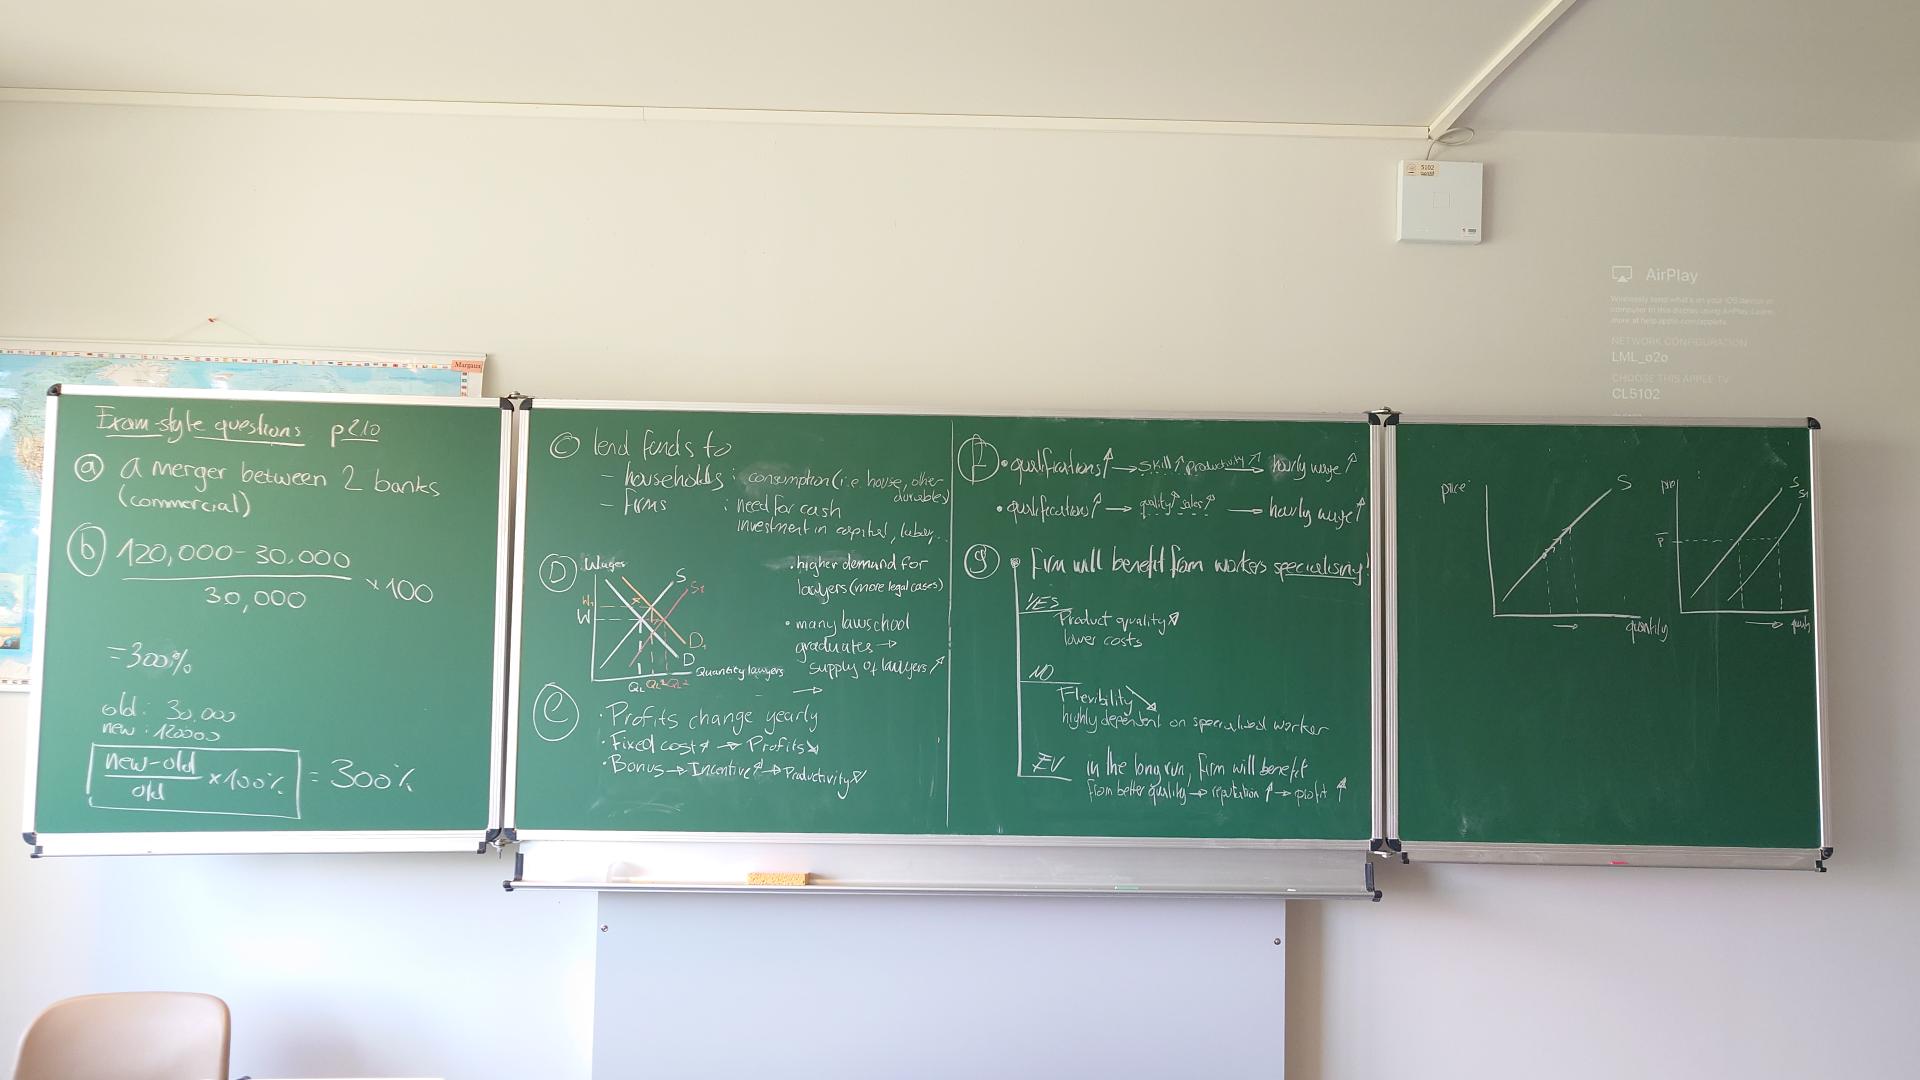 Exam-style questions p210
ⓐ a merger between 2 banks
(commercial)
ⓑ 120,000 - 30,000
30,000
×100
= 300%
old: 30,000
new: 120000
new-old
old
×100% = 300%
ⓒ lend funds to
- households : consumption (i.e. house, other
durables)
- firms : need for cash
investment in capital, labor, ..
Ⓓ Wages
S
S1
W1
W
D1
D
Quantity lawyers
QL
• higher demand for
lawyers (more legal cases)
• many lawschool
graduates →
supply of lawyers ↗
ⓔ • Profits change yearly
• Fixed cost ↗ → Profits ↘
• Bonus → Incentive ↗ → Productivity ↗
• qualifications ↗ → skill ↑ productivity ↗ → hourly wage ↗
• qualifications ↗ → quality ↗ sales ↗ → hourly wage ↗
ⓖ Firm will benefit from workers specialising!
YES
Product quality ↗
lower costs
NO
Flexibility ↘
highly dependent on specialised worker
EV in the long run, firm will benefit
from better quality → reputation ↗ → profit ↗
price
S
quantity
→
S
S1
P
→
Margaux
5102
AirPlay
Wirelessly send what's on your iOS device or
computer to this display using AirPlay. Learn
more at help.apple.com/appletv.
NETWORK CONFIGURATION
LML_o2o
CHOOSE THIS APPLE TV
CL5102